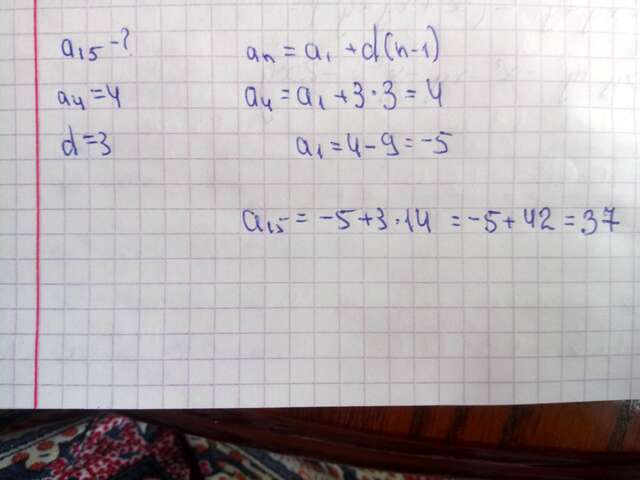 a₁₅ -?
a₄ = 4
d = 3
aₙ = a₁ + d(n-1)
a₄ = a₁ + 3·3 = 4
a₁ = 4 - 9 = -5
a₁₅ = -5 + 3·14 = -5 + 42 = 37